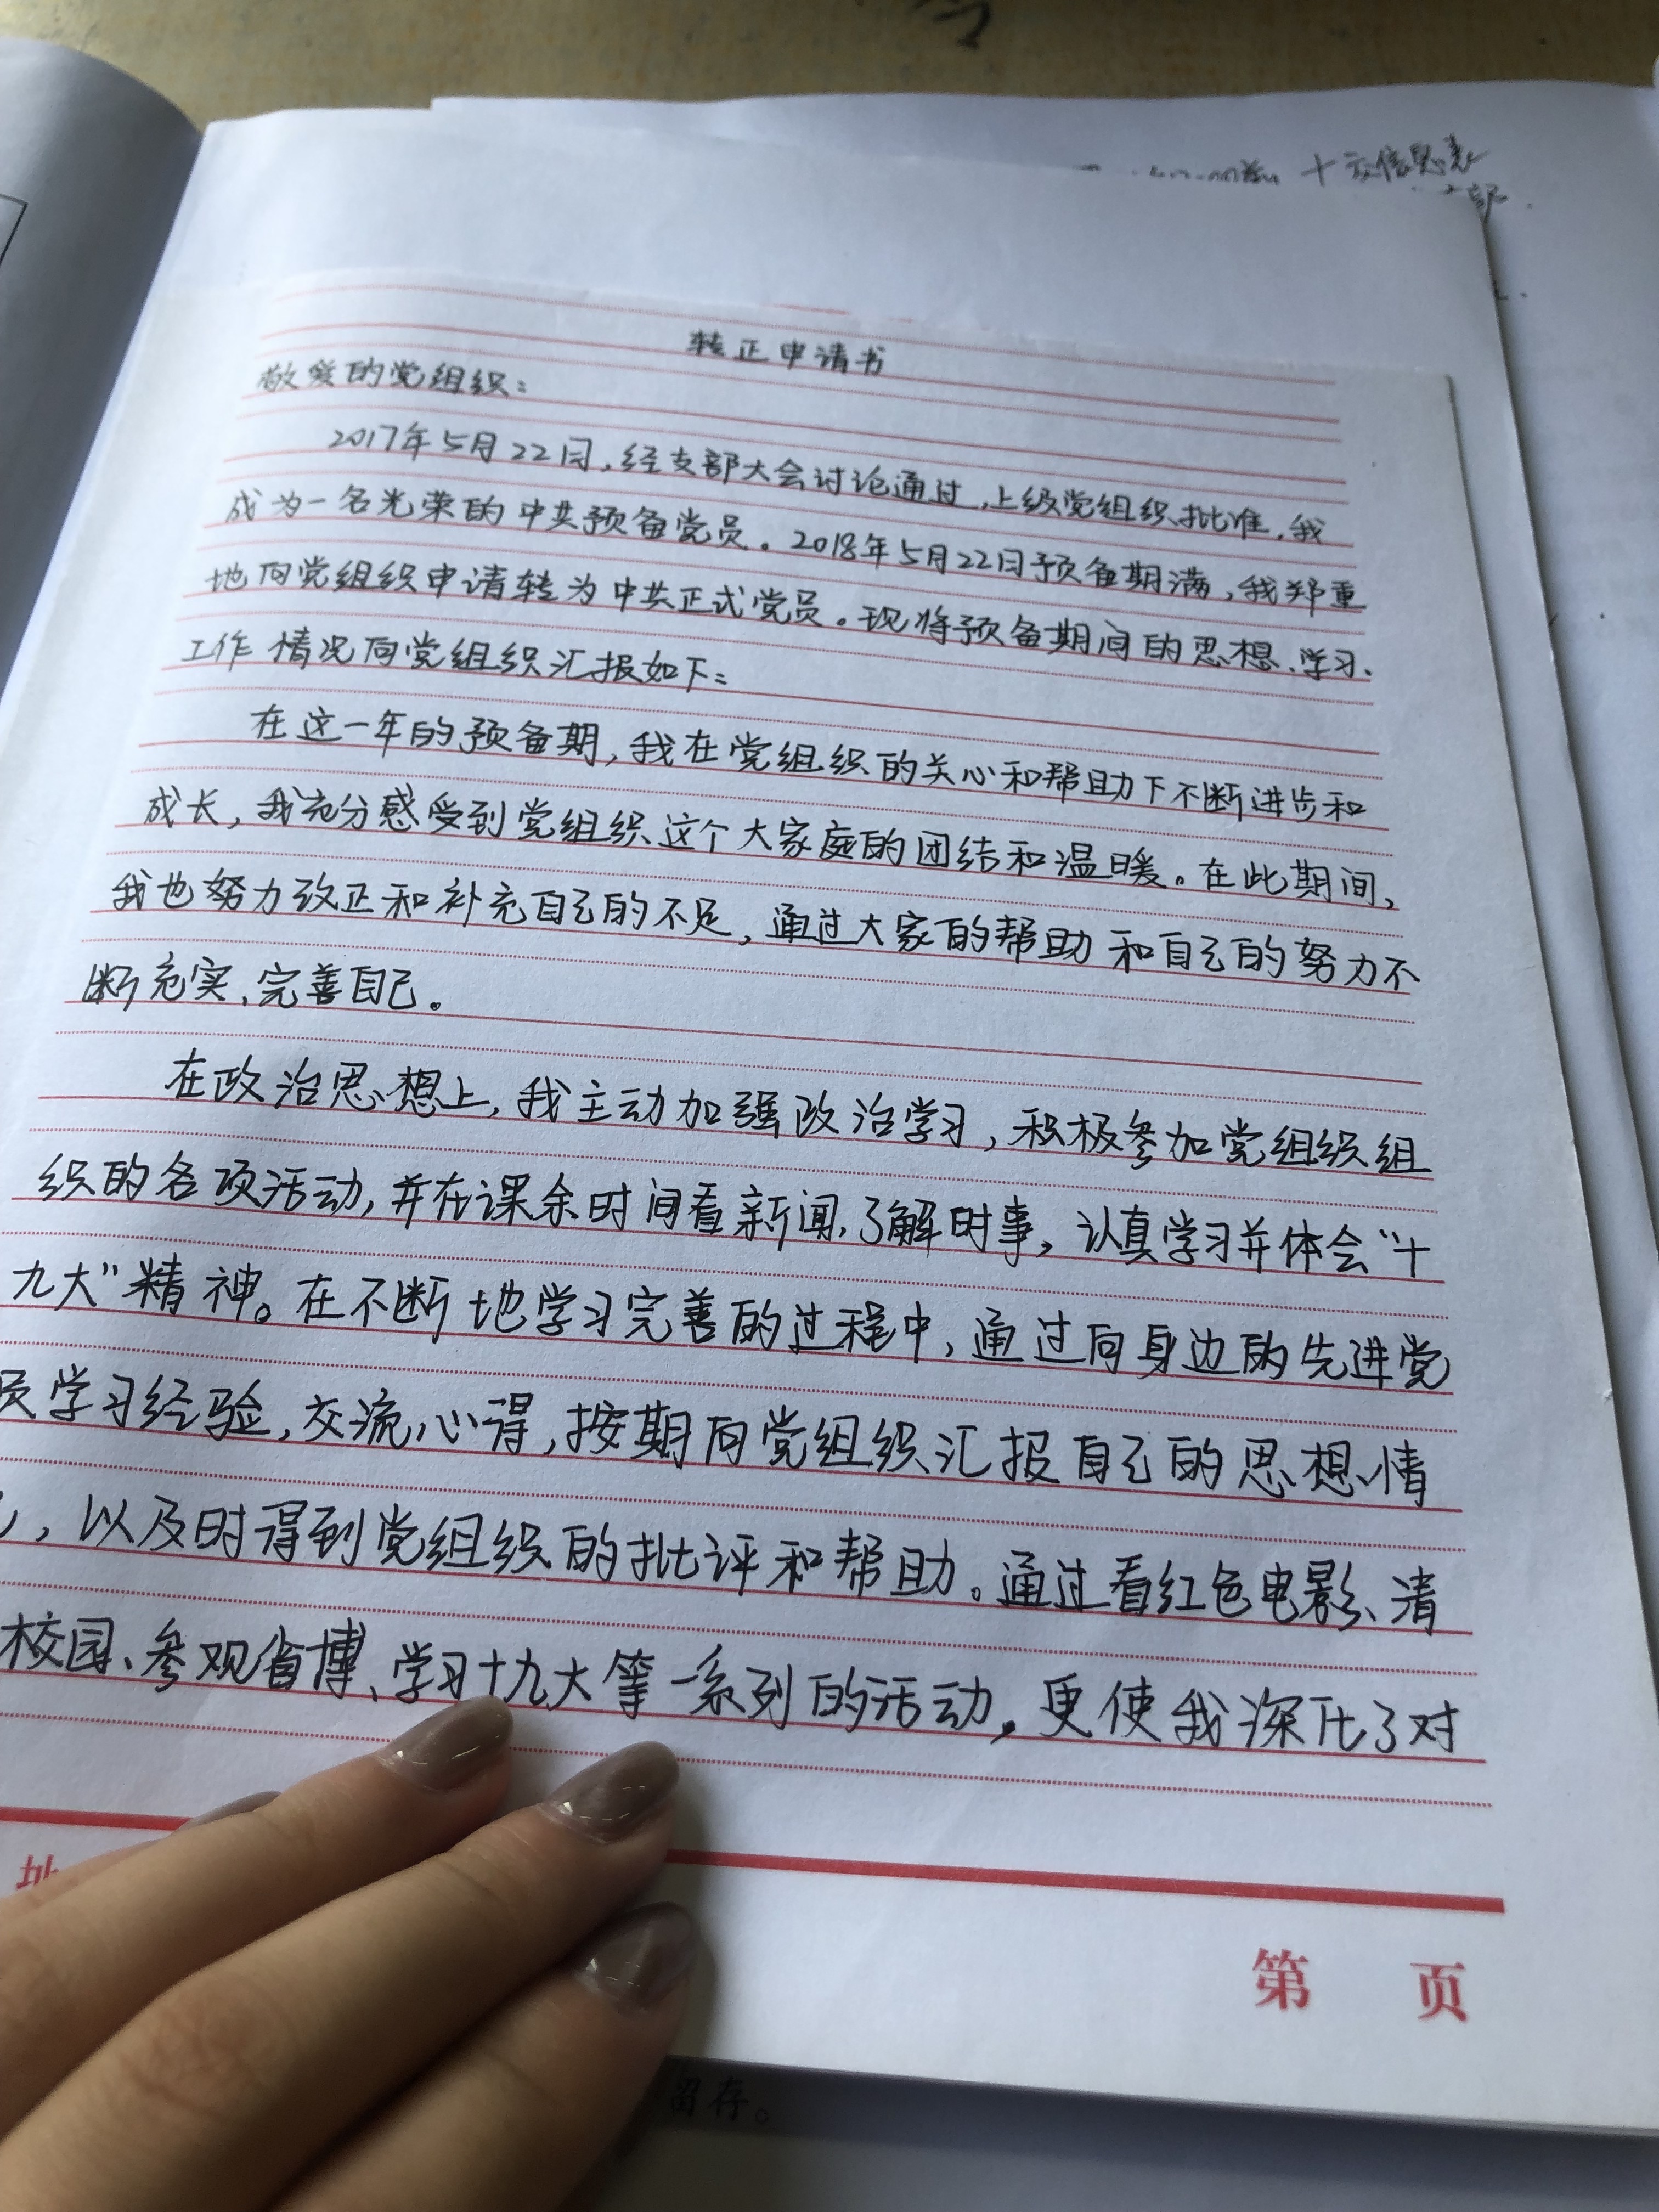 十 交信息表
部.
转正申请书
敬爱的党组织：
2017年5月22日，经支部大会讨论通过，上级党组织批准，我
成为一名光荣的中共预备党员。2018年5月22日预备期满，我郑重
地向党组织申请转为中共正式党员。现将预备期间的思想、学习、
工作情况向党组织汇报如下：
在这一年的预备期，我在党组织的关心和帮助下不断进步和
成长，我充分感受到党组织这个大家庭的团结和温暖。在此期间，
我也努力改正和补充自己的不足，通过大家的帮助和自己的努力不
断充实、完善自己。
在政治思想上，我主动加强政治学习，积极参加党组织组
织的各项活动，并在课余时间看新闻，了解时事，认真学习并体会“十
九大”精神。在不断地学习完善的过程中，通过向身边的先进党
员学习经验，交流心得，按期向党组织汇报自己的思想情
，以及时得到党组织的批评和帮助。通过看红色电影、清
校园、参观省博、学习十九大等一系列的活动，更使我深化了对
址
第 页
留存。